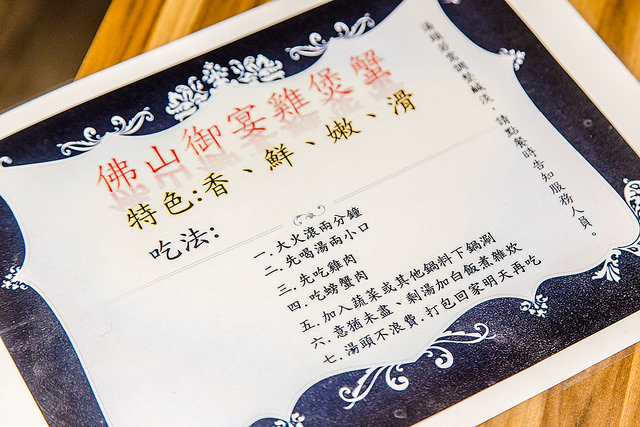 佛山御宴雞煲蟹
特色:香、鮮、嫩、滑
吃法:
一.大火滾兩分鐘
二.先喝湯兩小口
三.先吃雞肉
四.吃螃蟹肉
五.加入蔬菜或其他鍋料下鍋涮
六.意猶未盡、剩湯加白飯煮雜炊
七.湯頭不浪費.打包回家明天再吃
湯頭若需調整鹹淡、請點餐時告知服務人員。